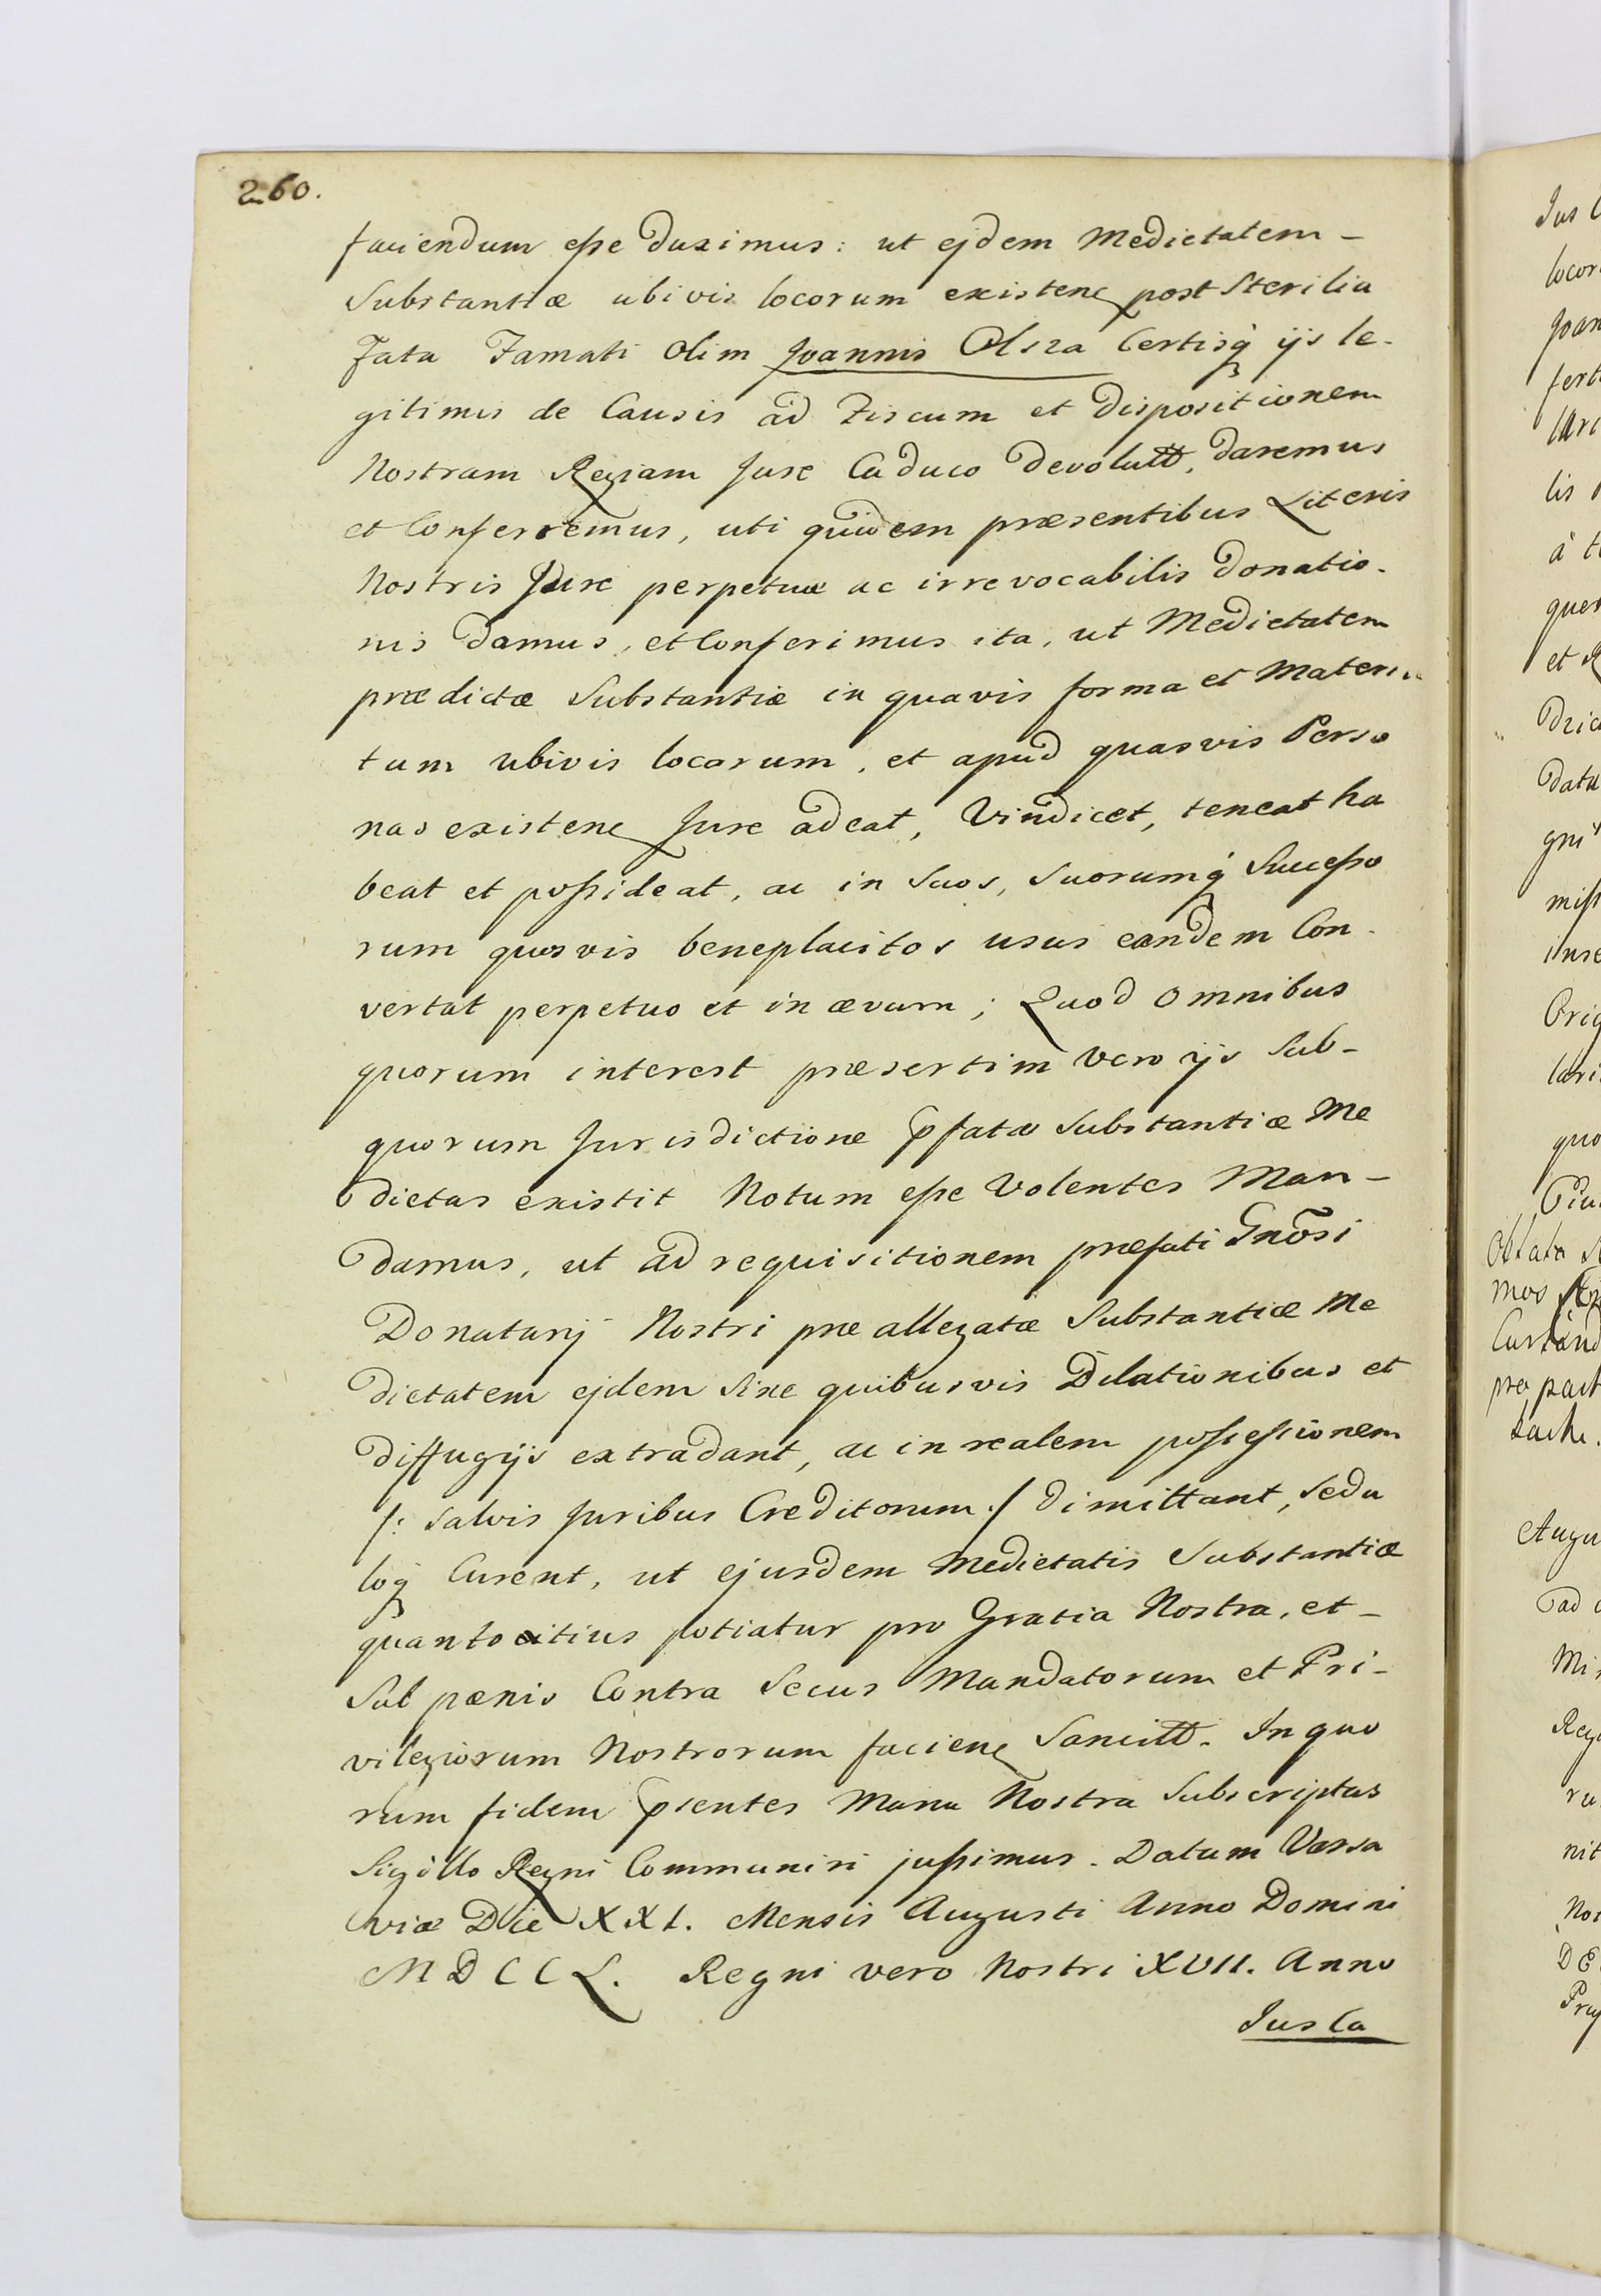 260.
faciendum eſse duximus: ut ejdem Medietatem –
Substantiæ ubivis locorum existenꝭ post Sterilia
Fata Famati olim Joannis Olsza Certisq́ ijs le-
gitimis de Causis ad Fiscum et dispositionem
Nostram Regiam Jure Caduco devolutt, daremus
et Conferremus, uti quidem præsentibus Literis
Nostris Jure perpetuæ ac irrevocabilis donatio-
nis damus, et Conferimus ita, ut Medietatem
prædictæ Substantiæ in quavis forma et Materia
tum ubivis locorum, et apud quasvis Perso
nas existenꝭ Jure adeat, Vindicet, teneat ha
beat et poſsideat, ac in suos, suorumq́ Succeſso
rum quosvis beneplacitos usus eandem Con-
vertat perpetuo et in ævum; Quod omnibus
quorum interest præsertim vero ijs sub-
quorum Jurisdictione p̄fatæ substantiæ Me
dietas existit Notum eſse Volentes Man-
damus, ut ad requisitionem præfati Gnõsi
Donatarij Nostri præallegatæ Substantiæ Me
dietatem ejdem sine quibusvis Dilationibus et
diffugijs extradant, ac in realem poſseſsionem
/: salvis Juribus Creditorum :/ dimittant, sedu
loq́ Curent, ut ejusdem Medietatis Substantiæ
quantocitius potiatur pro Gratia Nostra, et –
Sub pœnis Contra Secus Mandatorum et Pri-
vilegiorum Nostrorum facienꝭ Sancitt. In quo
rum fidem p̄sentes Manu Nostra Subscriptas
Sigillo Regni Communiri juſsimus. Datum Varsa
viæ Die XXI. Mensis Augusti Anno Domini
MDCCL. Regni vero Nostri XVII. Anno
Jus Ca
Jus C
locor
Joan
fert
lis
à t
quer
et R
Data
gni
miſs
inse
Orig
lari
quo
Oblata
mos
Curland
pro part
Augu
ad
Mi
Reg
ru
nit
Nos
DE